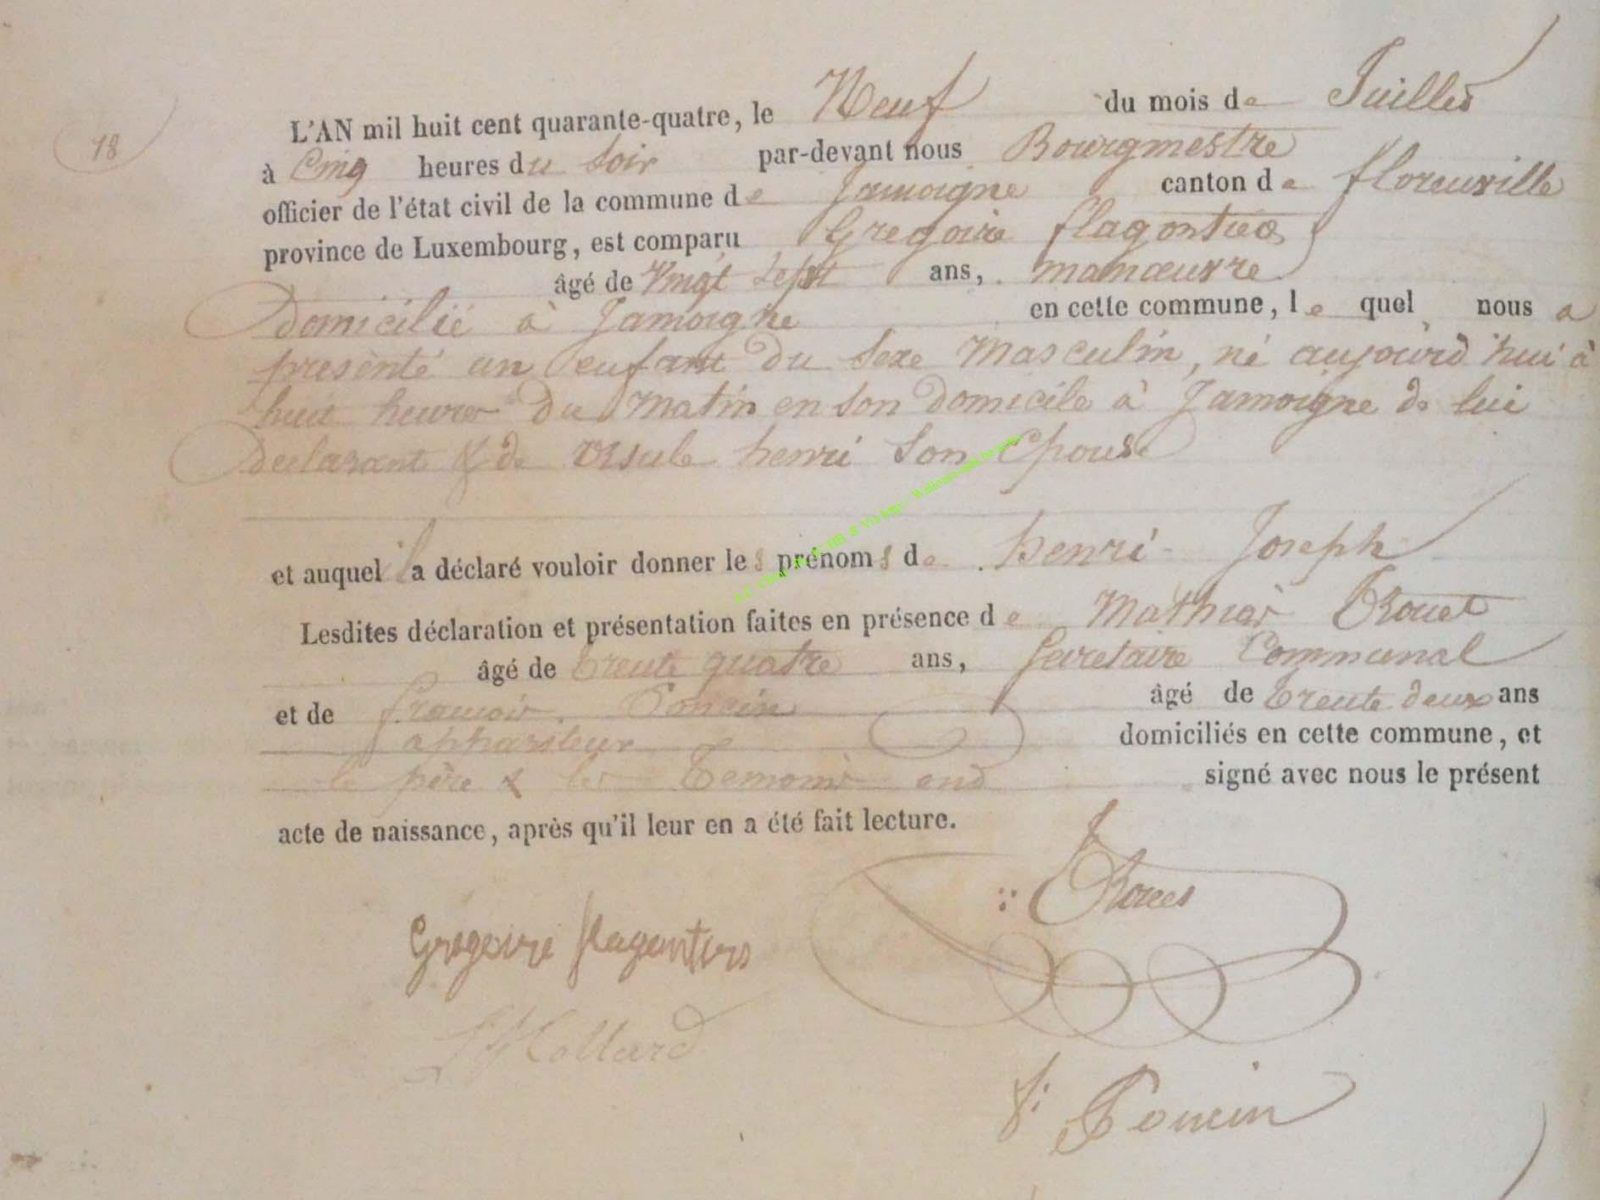 18
L'AN mil huit cent quarante-quatre, le Neuf du mois de Juillet
à Cinq heures du Soir par-devant nous Bourgmestre
officier de l'état civil de la commune de Jamoigne canton de florenville
province de Luxembourg, est comparu Gregoire flagontier
âgé de Vingt Sept ans, manœuvre
Domicilié à Jamoigne en cette commune, le quel nous a
présenté un enfant du Sexe Masculin, né aujourd'hui à
huit heures Du Matin en son Domicile à Jamoigne de lui
Declarant & de ursule henri Son Epouse
et auquel il a déclaré vouloir donner les prénoms de henri Joseph
Lesdites déclaration et présentation faites en présence de Mathias
âgé de trente quatre ans, Secretaire Communal
et de francois Poncin âgé de trente deux ans
domiciliés en cette commune, et
le père & les Temoins ont signé avec nous le présent
acte de naissance, après qu'il leur en a été fait lecture.
Gregoire flagontiers
Collard
f: Poncin